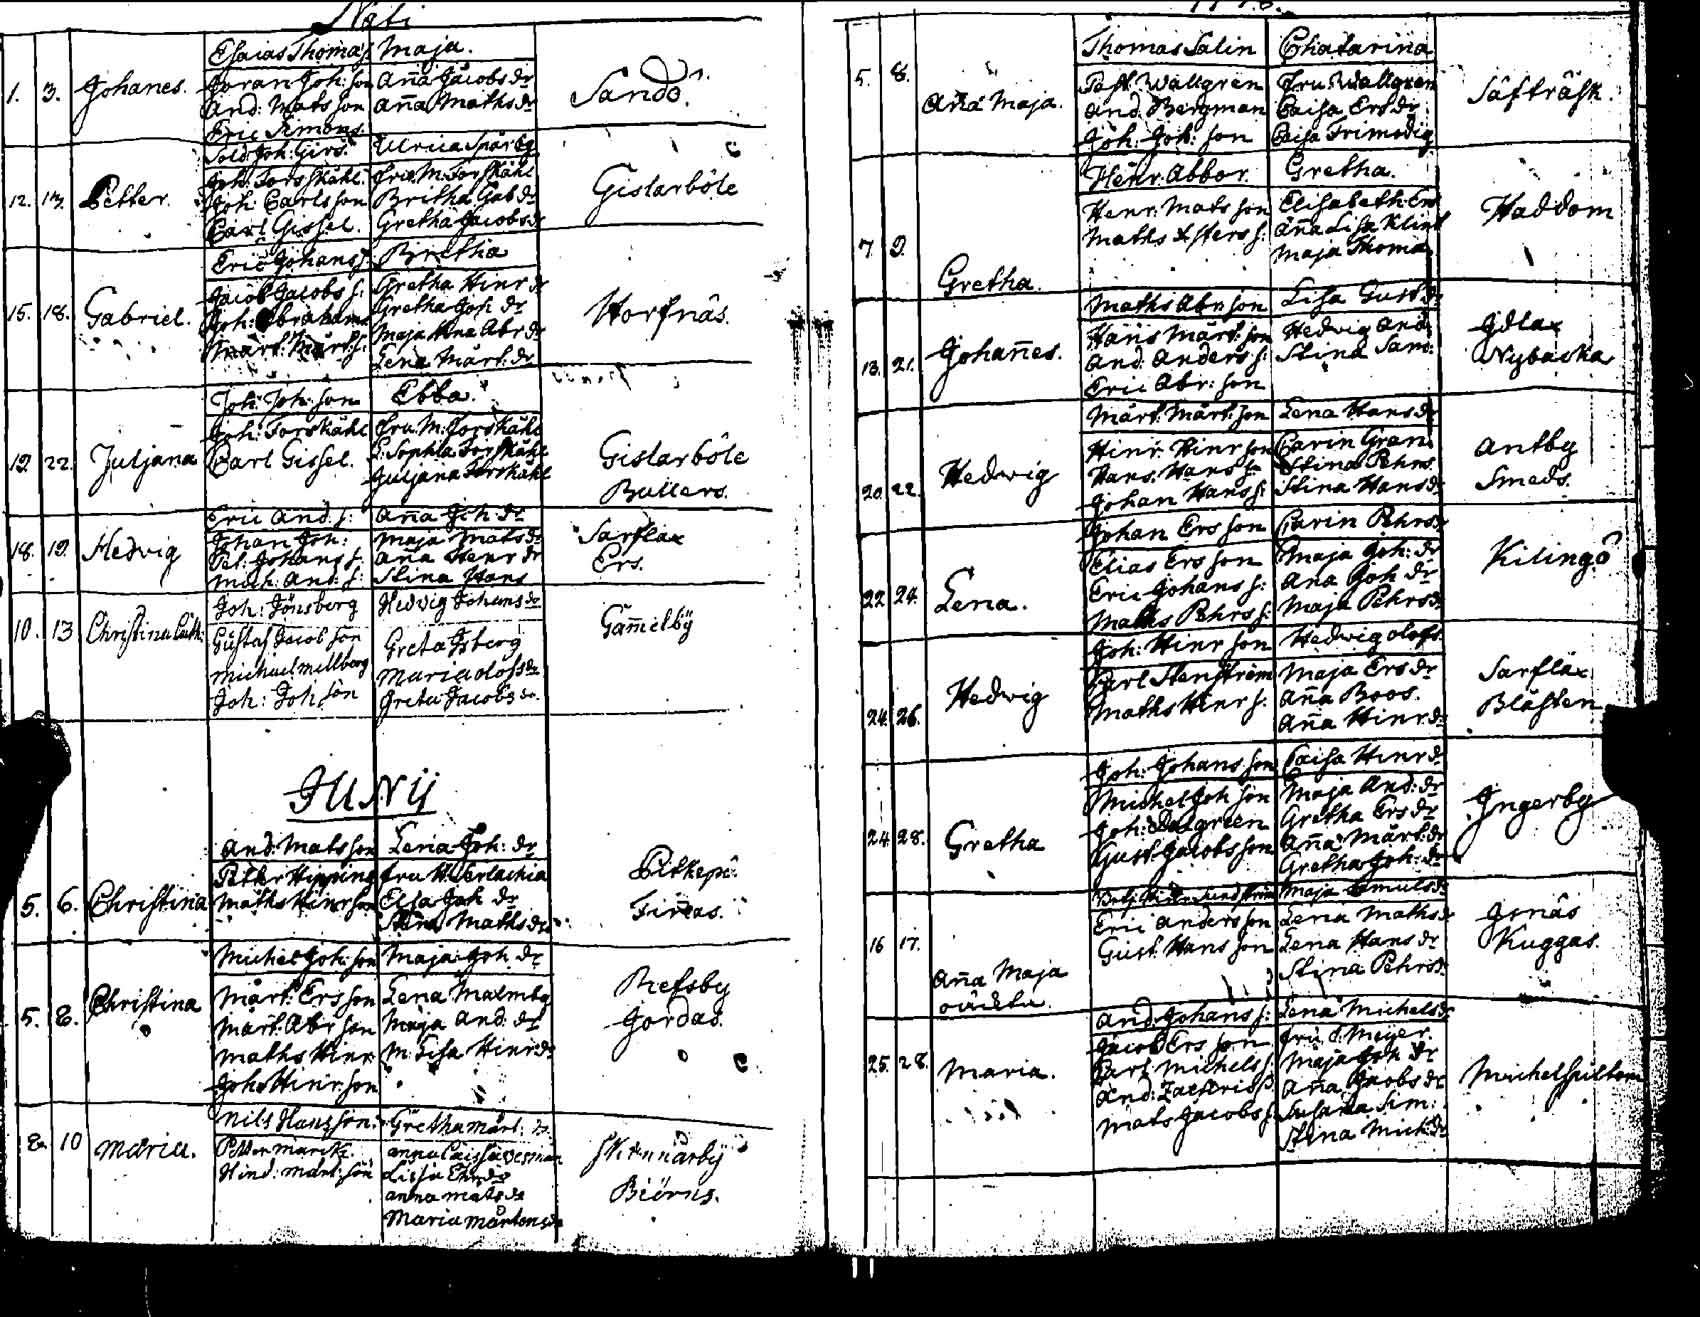 Nati
Esaias Thomas: Maja.
1. 3. Johanes. Göran Joh: son Anna Jacobs dr Sandö.
And: Mats son Anna Maths dr
Eric Simons
Sold: Joh: Girs. Ulrica Sparbg
12. 13. Petter. Joh: Forsskåhl. Fru M: Forsskåhl Gislarböle
Joh: Carlsson Britha Gab dr
Carl Gissel. Gretha Jacobs dr
Eric Johans s. Britha
15. 18. Gabriel. Jacob Jacobs s: Gretha Hinr dr Horsnäs.
Joh: Abrahams Gretha Joh dr
Märt: Märt s: Maja Ana Abr dr
Lena Märt: dr
Joh: Joh: son Ebba.
19. 22. Juljana Joh: Forskåhl Fru M: Forskåhl Gislarböle
Carl Gissel. L: Sophia Forskåhl Bullers.
Juljana Forskåhl
Eric And. s: Anna Joh dr
18. 19. Hedvig Johan Joh: Maja Mats dr Sarflax
Pet: Johans s. Anna Henr dr Ers.
Mich: And: s: Stina Hans
10. 13 Christina Cath: Joh: Jönsberg Hedvig Johans dr Gammelby
Gustaf Jacob son Greta Isberg
Michael Mellberg Maria Olofs dr
Joh: Joh son Greta Jacobs dr
JUNIJ
And: Mats son Lena Joh: dr
5. 6. Christina Petter Hipping Fru Pitkepä
Maths Hinr son Elsa Joh dr Finnas.
Stina Maths dr
Michel Joh: son Maja Joh. dr
5. 8. Christina Märt: Ers son Lena Malmbg Refsby
Märt: Abr son Maja And: dr Gordas.
Maths Hinr M: Lisa Hinr dr
Joh: Hinr: son
Nils Hans son: Gretha Märt: dr
8. 10 Maria. Petter Skinnarby
Hind: Märt: son Lisa Biörns.
Anna Mats dr
Maria Mårtens dr
Thomas Salin Chatarina
5. 8. Anna Maja. Past: Wallgren Fru Wallgren Säfträsk.
And: Bergman Caisa Ers dr
Joh: Joh: son Caisa Frimodig
Henr. Abbor. Gretha.
7 9. Gretha. Henr: Mats son Elisabeth Ers Haddom
Maths s: Anna Lisa Klint
Maja Thoma
Maths Abr son Lisa Gust dr
13. 21. Johannes. Hans Märt: son Hedvig And: Gdlax
And: Anders s: Stina Sam: Nybacka
Eric Abr: son
Märt: Märt: son Lena Hans dr
20. 22. Hedwig Hinr: Hinr son Carin Gran Antby
Hans: Hans s: Stina Pehrs Smeds.
Johan Hans s: Stina Hans dr
Johan Ers son Carin Pehrs dr
22 24. Lena. Elias Ers son Maja Joh: dr Kilingö
Eric Johans s: Ana Joh dr
Maths Pehrs s: Maja Pehrs dr
Joh: Hinr son Hedwig Olofs
24. 26. Hedwig Carl Stenström Maja Ers dr Sarflax
Maths Hinr s: Anna Boos. Blästen
Anna Hinr dr
Joh: Johans son Caisa Hinr dr
24 28. Gretha Michel Joh son Maja And: dr Ingerby
Joh: Dalgreen Gretha Ers dr
Gust: Jacobs son Anna Märt: dr
Gretha Joh: dr
Maja Emuls dr
16 17. Anna Maja Eric Anders son Lena Maths dr Isnäs
Gust: Hans son Lena Hans dr Kuggas.
oächta. Stina Pehrs dr
And: Johans s: Lena Michels dr
25. 28. Maria. Jacob Ers son Fru C: Meyer. Michelspiltom
Carl Michels s. Maja Joh dr
And: Zachris s: Anna Jacobs dr
Mats Jacobs s. Susana Sim:
Stina Mich dr